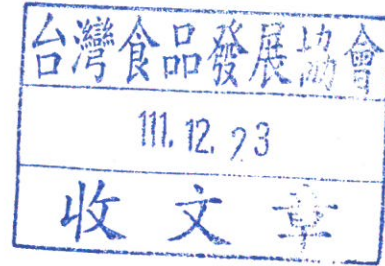 台灣食品發展協會
111.12.23
收文章